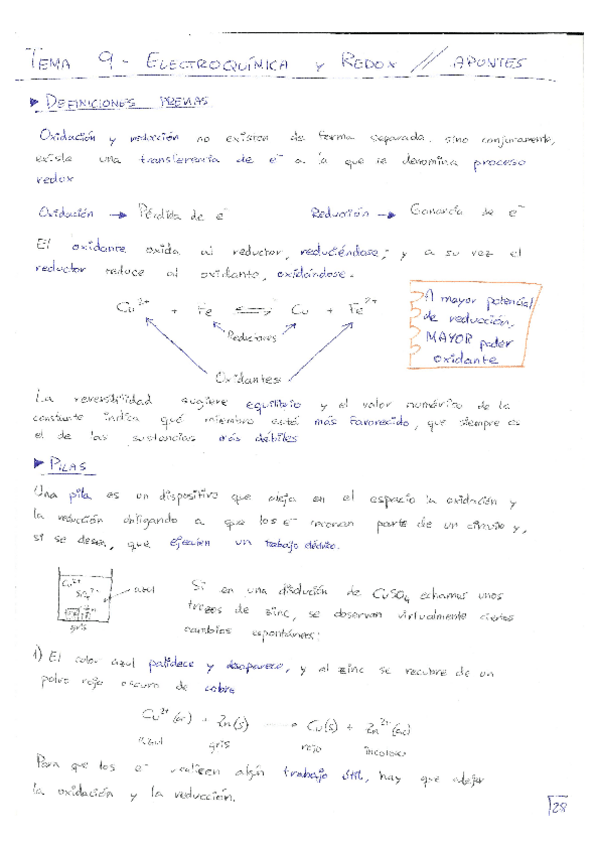 TEMA 9 - ELECTROQUÍMICA y REDOX // APUNTES
► DEFINICIONES PREVIAS
Oxidación y reducción no existen de forma separada, sino conjuntamente,
existe una transferencia de e⁻ a la que se denomina proceso
redox
Oxidación → Pérdida de e⁻ Reducción → Ganancia de e⁻
El oxidante oxida al reductor, reduciéndose; y a su vez el
reductor reduce al oxidante, oxidándose.
Cu²⁺ + Fe ⇌ Cu + Fe²⁺
Reductores
Oxidantes
A mayor potencial
de reducción,
MAYOR poder
oxidante
La reversibilidad sugiere equilibrio y el valor numérico de la
constante indica qué miembro está más favorecido, que siempre es
el de las sustancias más débiles
► PILAS
Una pila es un dispositivo que aleja en el espacio la oxidación y
la reducción obligando a que los e⁻ recorran parte de un circuito y,
si se desea, que ejecuten un trabajo
Cu²⁺
SO₄²⁻
azul
gris
Si en una disolución de CuSO₄ echamos unos
trozos de zinc, se observan virtualmente ciertos
cambios espontáneos:
1) El color azul palidece y desaparece, y al zinc se recubre de un
polvo rojo oscuro de cobre
Cu²⁺(ac) + Zn(s) → Cu(s) + Zn²⁺(ac)
azul gris rojo incoloro
Para que los e⁻ realicen algún trabajo útil, hay que alejar
la oxidación y la reducción.
28